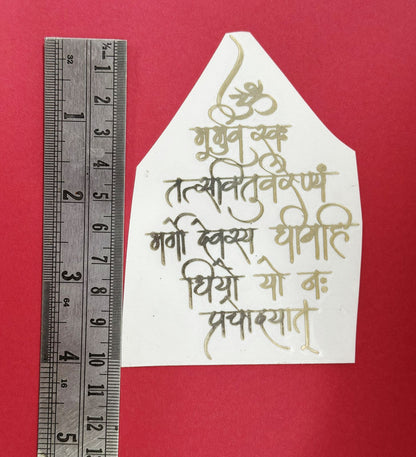 ॐ
भूर्भुव स्वः
तत्सवितुर्वरेण्यं
भर्गो देवस्य धीमहि
धियो यो नः
प्रचोदयात्
32
1 2 3 4 5
64
16
1 2 3 4 5 6 7 8 9 10 11 12